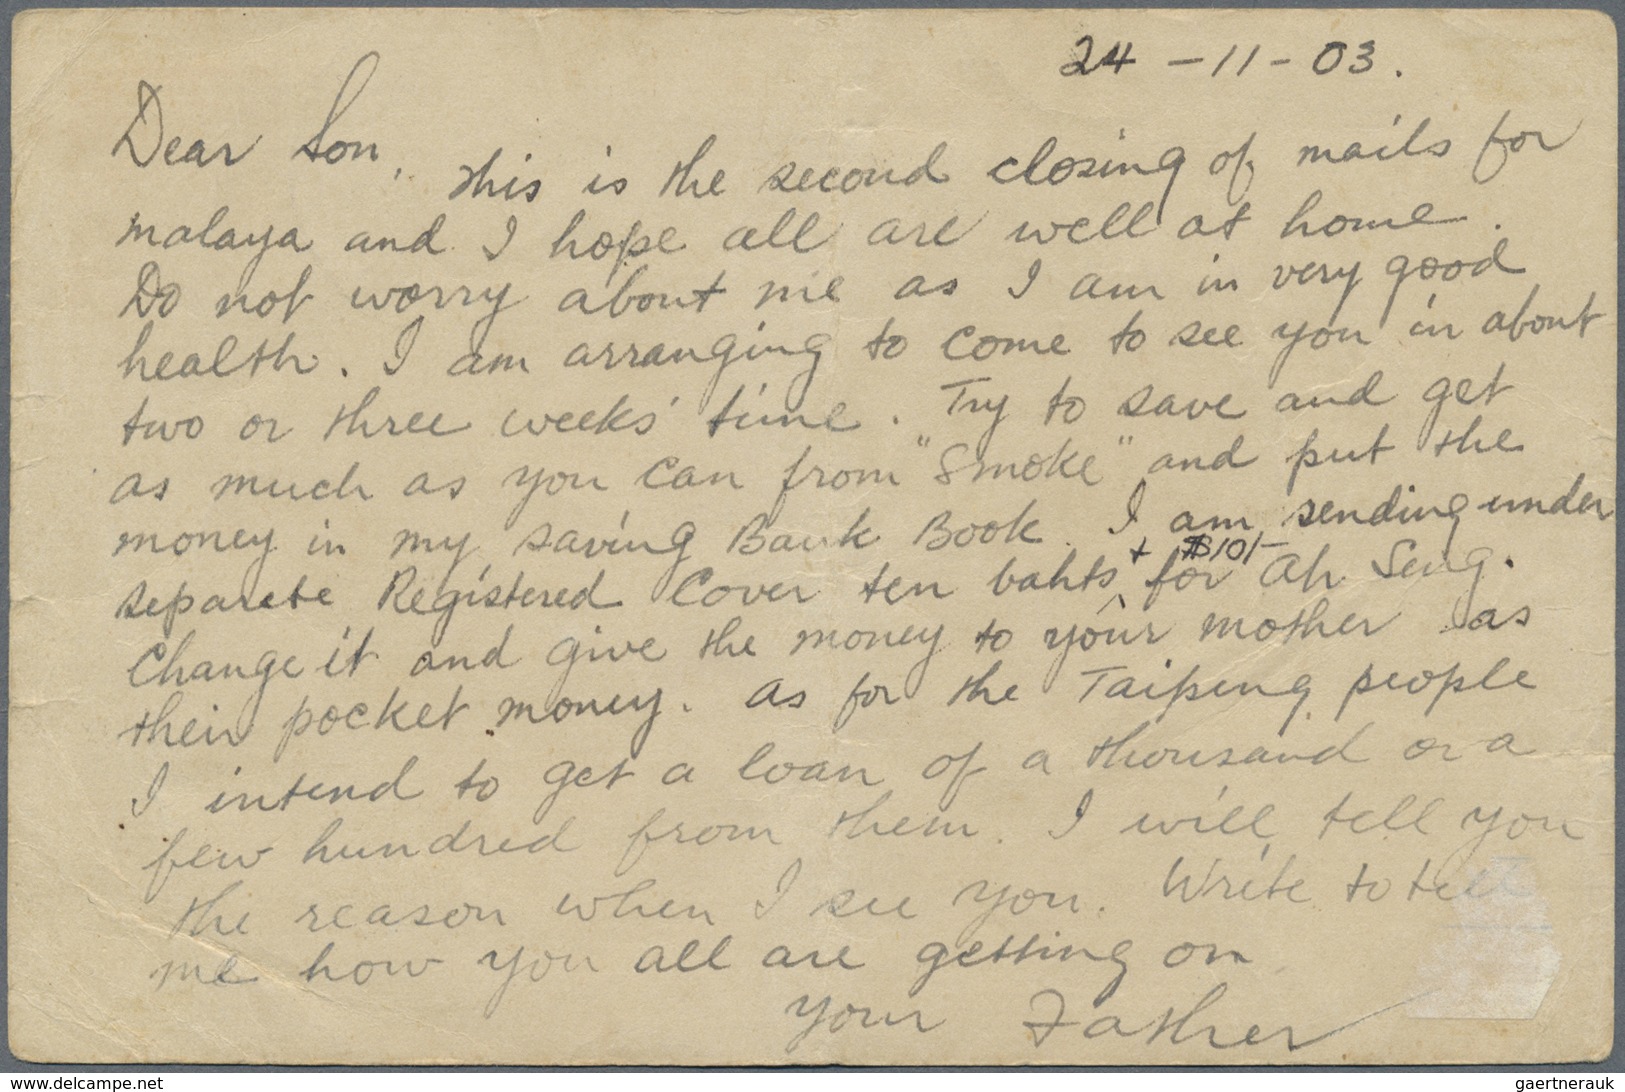 24 - 11 - 03.
Dear Son,
This is the second closing of mails for
malaya and I hope all are well at home.
Do not worry about me as I am in very good
health. I am arranging to come to see you in about
two or three weeks' time. Try to save and get
as much as you can from "Smoke" and put the
money in my saving Bank Book. I am sending under
separate Registered Cover ten bahts + $10/- for Ah Seng.
Change it and give the money to your mother as
their pocket money. As for the Taipeng people
I intend to get a loan of a thousand or a
few hundred from them. I will tell you
the reason when I see you. Write to tell
me how you all are getting on
your Father
www.delcampe.net
gaertnerauk